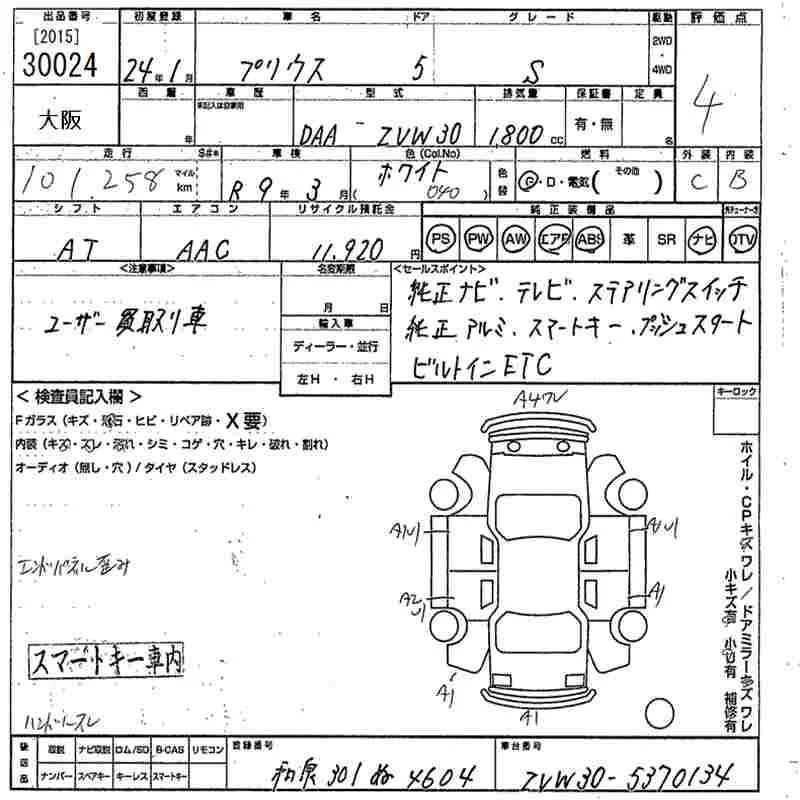 出品番号 初度登録 車名 ドア グレード 駆動 評価点
[2015] 30024 24年1月 プリウス 5 S 2WD 4WD 4
大阪 西暦 年 車歴 未記入は自家用 型式 DAA - ZVW30 排気量 1800cc 保証書 有・無 定員 名
走行 S#* 車検 色(Col.No) 燃料 外装 内装
101,258 マイル km R9年3月 ホワイト (040) 色替 G・D・電気( その他 ) C B
シフト エアコン リサイクル預託金 純正装備品
AT AAC 11,920円 PS PW AW エアB ABS 革 SR ナビ DTV
<注意事項> 名変期限 <セールスポイント>
ユーザー買取り車 月 日 純正ナビ.テレビ.ステアリングスイッチ
輸入車 純正アルミ.スマートキー.プッシュスタート
ディーラー・並行 ビルトインETC
左H・右H
<検査員記入欄> キーロック
Fガラス(キズ・飛石・ヒビ・リペア跡・X要) A4ワレ
内装(キズ・スレ・汚れ・シミ・コゲ・穴・キレ・破れ・割れ)
オーディオ(無し・穴)/タイヤ(スタッドレス)
ホイル・CPキズワレ/ドアミラーキズワレ
小キズ有 小U有 補修有
A1U1 A1U1
エンドパネル歪み
A2U1 A1
スマートキー車内
A1 A1
ハンドルスレ
後送品 取説 ナビ取説 ロム/SD B-CAS リモコン 登録番号 車台番号
ナンバー スペアキー キーレス スマートキー 和泉 301 ぬ 4604 ZVW30-5370134